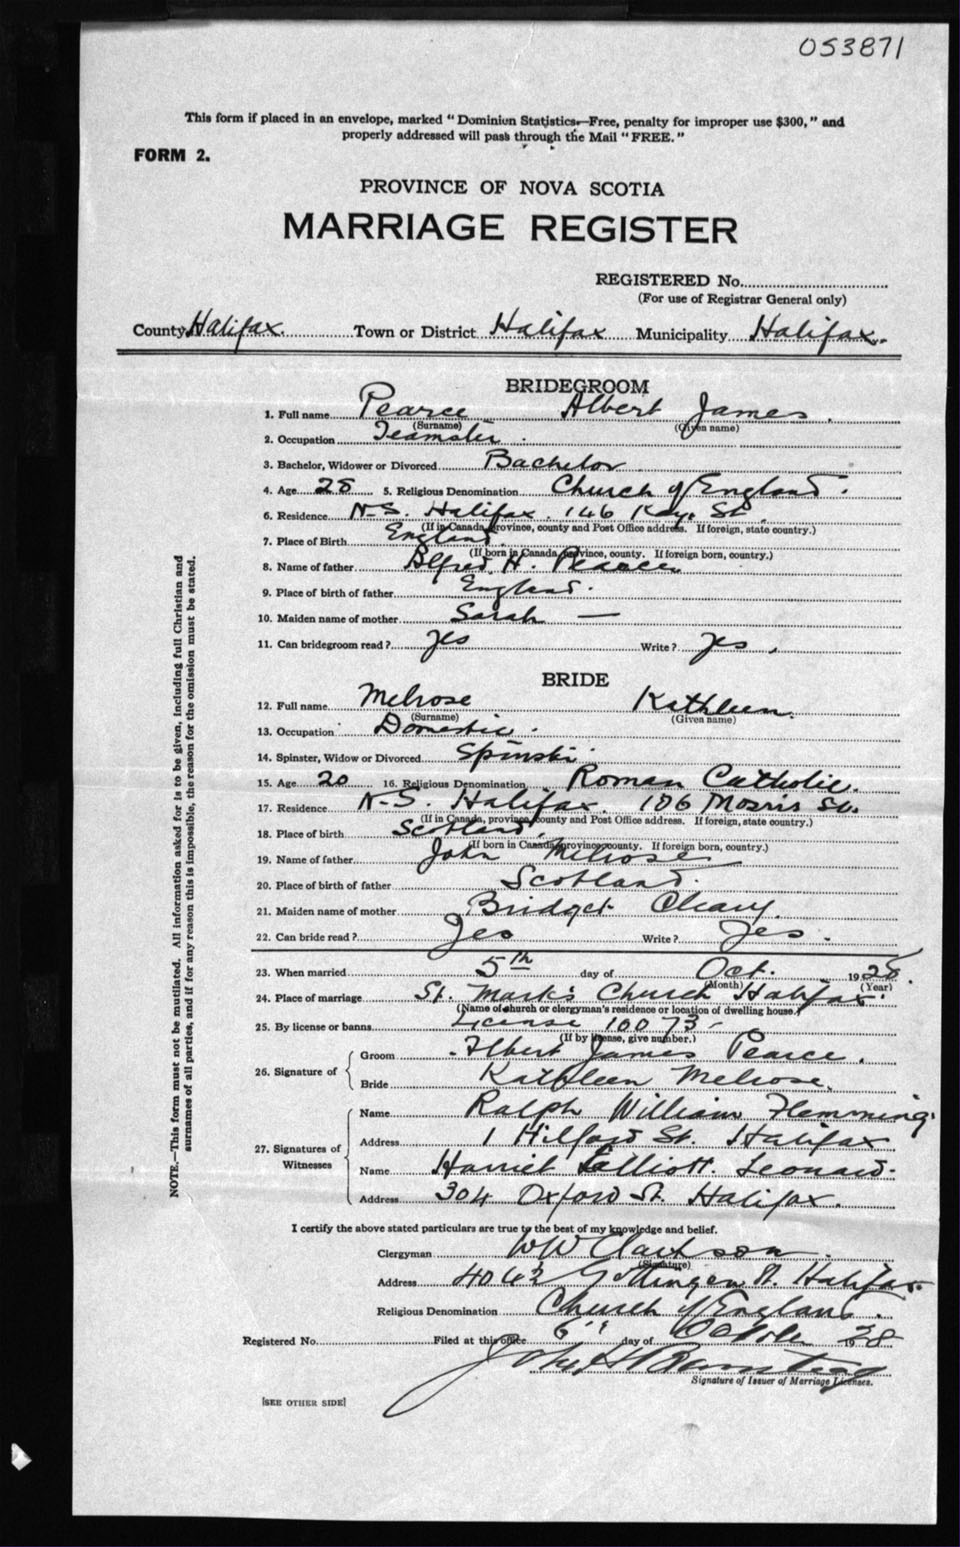 053871
This form if placed in an envelope, marked "Dominion Statistics—Free, penalty for improper use $300," and
properly addressed will pass through the Mail "FREE."
FORM 2.
PROVINCE OF NOVA SCOTIA
MARRIAGE REGISTER
REGISTERED No.
(For use of Registrar General only)
County Halifax. Town or District Halifax Municipality Halifax.
BRIDEGROOM
1. Full name Pearce Albert James.
(Surname) (Given name)
2. Occupation Teamster.
3. Bachelor, Widower or Divorced Bachelor
4. Age 28 5. Religious Denomination Church of England.
6. Residence N-S. Halifax. 146 Kaye St.
(If in Canada, province, county and Post Office address. If foreign, state country.)
7. Place of Birth England.
(If born in Canada, province, county. If foreign born, country.)
8. Name of father Alfred H. Pearce
9. Place of birth of father England.
10. Maiden name of mother Sarah —
11. Can bridegroom read? Yes Write? Yes.
BRIDE
12. Full name Melrose Kathleen.
(Surname) (Given name)
13. Occupation Domestic.
14. Spinster, Widow or Divorced Spinster.
15. Age 20 16. Religious Denomination Roman Catholic.
17. Residence N-S. Halifax. 186 Morris St.
(If in Canada, province, county and Post Office address. If foreign, state country.)
18. Place of birth Scotland.
(If born in Canada, province, county. If foreign born, country.)
19. Name of father John Melrose
20. Place of birth of father Scotland.
21. Maiden name of mother Bridget Cleary.
22. Can bride read? Yes Write? Yes.
23. When married 5th day of Oct. 1928.
(Month) (Year)
24. Place of marriage St. Mark's Church Halifax.
(Name of church or clergyman's residence or location of dwelling house.)
25. By license or banns License 10073-
(If by license, give number.)
26. Signature of
Groom Albert James Pearce.
Bride Kathleen Melrose.
27. Signatures of Witnesses
Name Ralph William Flemming.
Address 1 Hilford St. Halifax
Name Harriet Elliott Leonard.
Address 304 Oxford St. Halifax.
I certify the above stated particulars are true to the best of my knowledge and belief.
Clergyman W W Clarkson.
(Signature)
Address Gottingen St. Halifax.
Religious Denomination Church of England.
Registered No. Filed at this office 6" day of October 1928
John H
Signature of Issuer of Marriage Licenses.
[SEE OTHER SIDE]
NOTE.—This form must not be mutilated. All information asked for is to be given, including full Christian and
surnames of all parties, and if for any reason this is impossible, the reason for the omission must be stated.